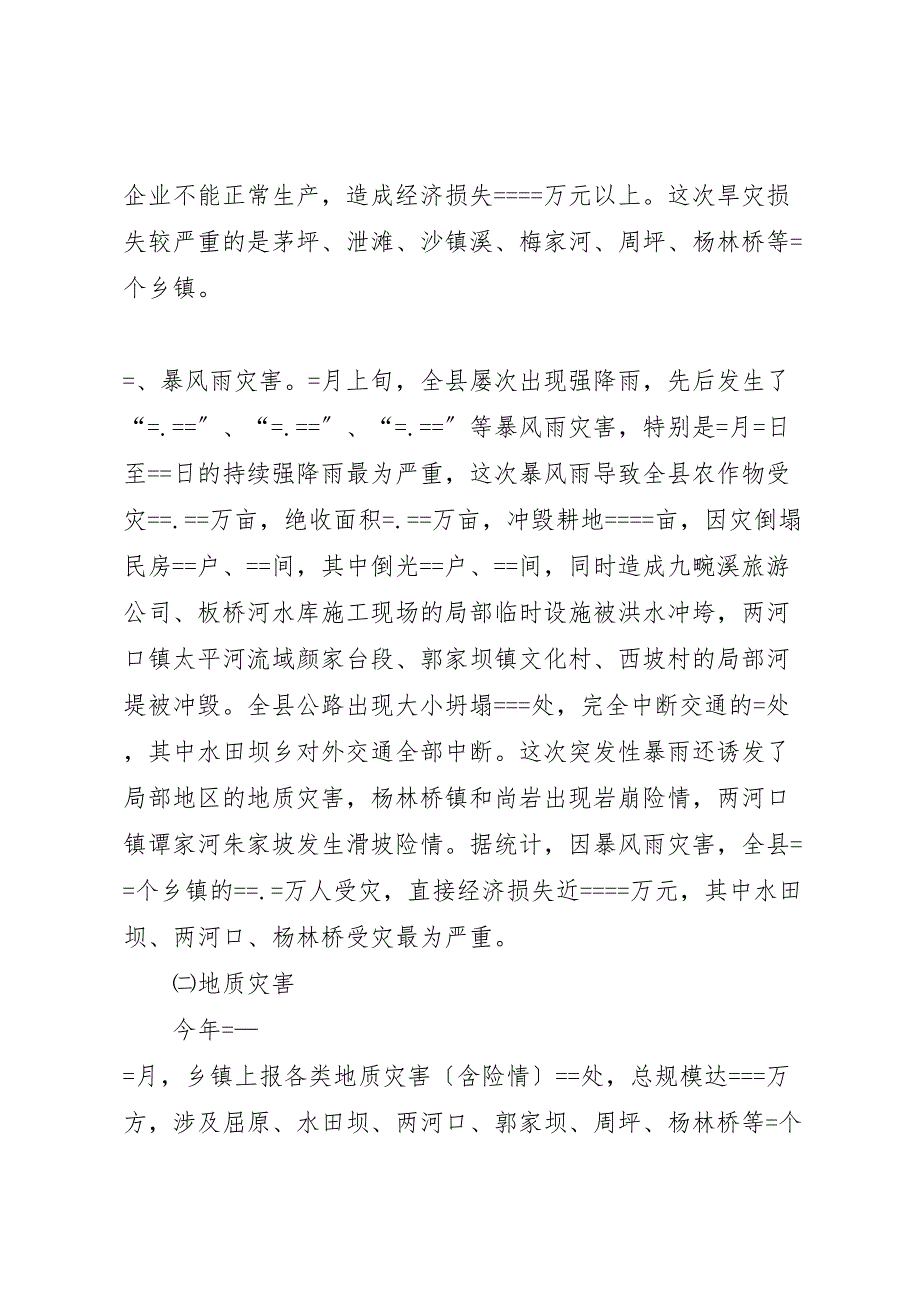 企业不能正常生产，造成经济损失====万元以上。这次旱灾损
失较严重的是茅坪、泄滩、沙镇溪、梅家河、周坪、杨林桥等=
个乡镇。
=、暴风雨灾害。=月上旬，全县屡次出现强降雨，先后发生了
“=.==〞、“=.==〞、“=.==〞等暴风雨灾害，特别是=月=日
至==日的持续强降雨最为严重，这次暴风雨导致全县农作物受
灾==.==万亩，绝收面积=.==万亩，冲毁耕地====亩，因灾倒塌
民房==户、==间，其中倒光==户、==间，同时造成九畹溪旅游
公司、板桥河水库施工现场的局部临时设施被洪水冲垮，两河
口镇太平河流域颜家台段、郭家坝镇文化村、西坡村的局部河
堤被冲毁。全县公路出现大小坍塌===处，完全中断交通的=处
，其中水田坝乡对外交通全部中断。这次突发性暴雨还诱发了
局部地区的地质灾害，杨林桥镇和尚岩出现岩崩险情，两河口
镇谭家河朱家坡发生滑坡险情。据统计，因暴风雨灾害，全县=
=个乡镇的==.=万人受灾，直接经济损失近====万元，其中水田
坝、两河口、杨林桥受灾最为严重。
㈡地质灾害
今年=—
=月，乡镇上报各类地质灾害〔含险情〕==处，总规模达===万
方，涉及屈原、水田坝、两河口、郭家坝、周坪、杨林桥等=个